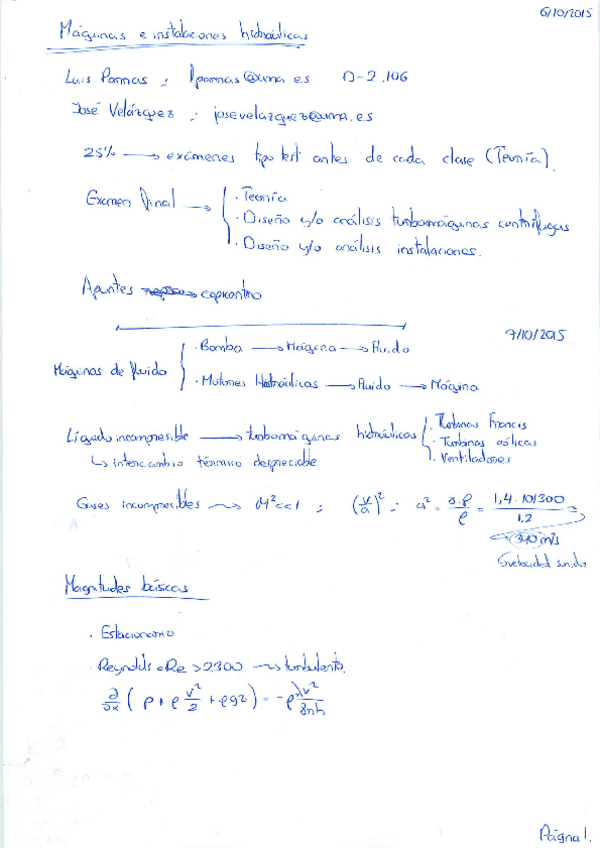 6/10/2015
Máquinas e instalaciones hidraúlicas
Luis Parras : lparras@uma.es D-2.106
José Velázquez : josevelazquez@uma.es
25% → exámenes tipo test antes de cada clase (Teoría).
Examen final → { · Teoría
· Diseño y/o análisis turbomáquinas centrífugas
· Diseño y/o análisis instalaciones.
Apuntes copicentro
7/10/2015
Máquinas de fluido { · Bomba → Máquina → Fluido
· Motores Hidraúlicas → Fluido → Máquina
Líquido incompresible → turbomáquinas hidráulicas { · Turbinas Francis
· Turbinas eólicas
· Ventiladores
↳ intercambio térmico despreciable
Gases incompresibles ⇝ M² << 1 ; (v/a)² ; a² = γ·P/ρ = 1,4·101300/1,2
340 m/s
velocidad sonido
Magnitudes básicas
· Estacionario
· Reynolds Re > 2300 ⇝ turbulento.
∂/∂x (p + ρ v²/2 + ρgz) = -ρ λv²/8rh
Página 1.